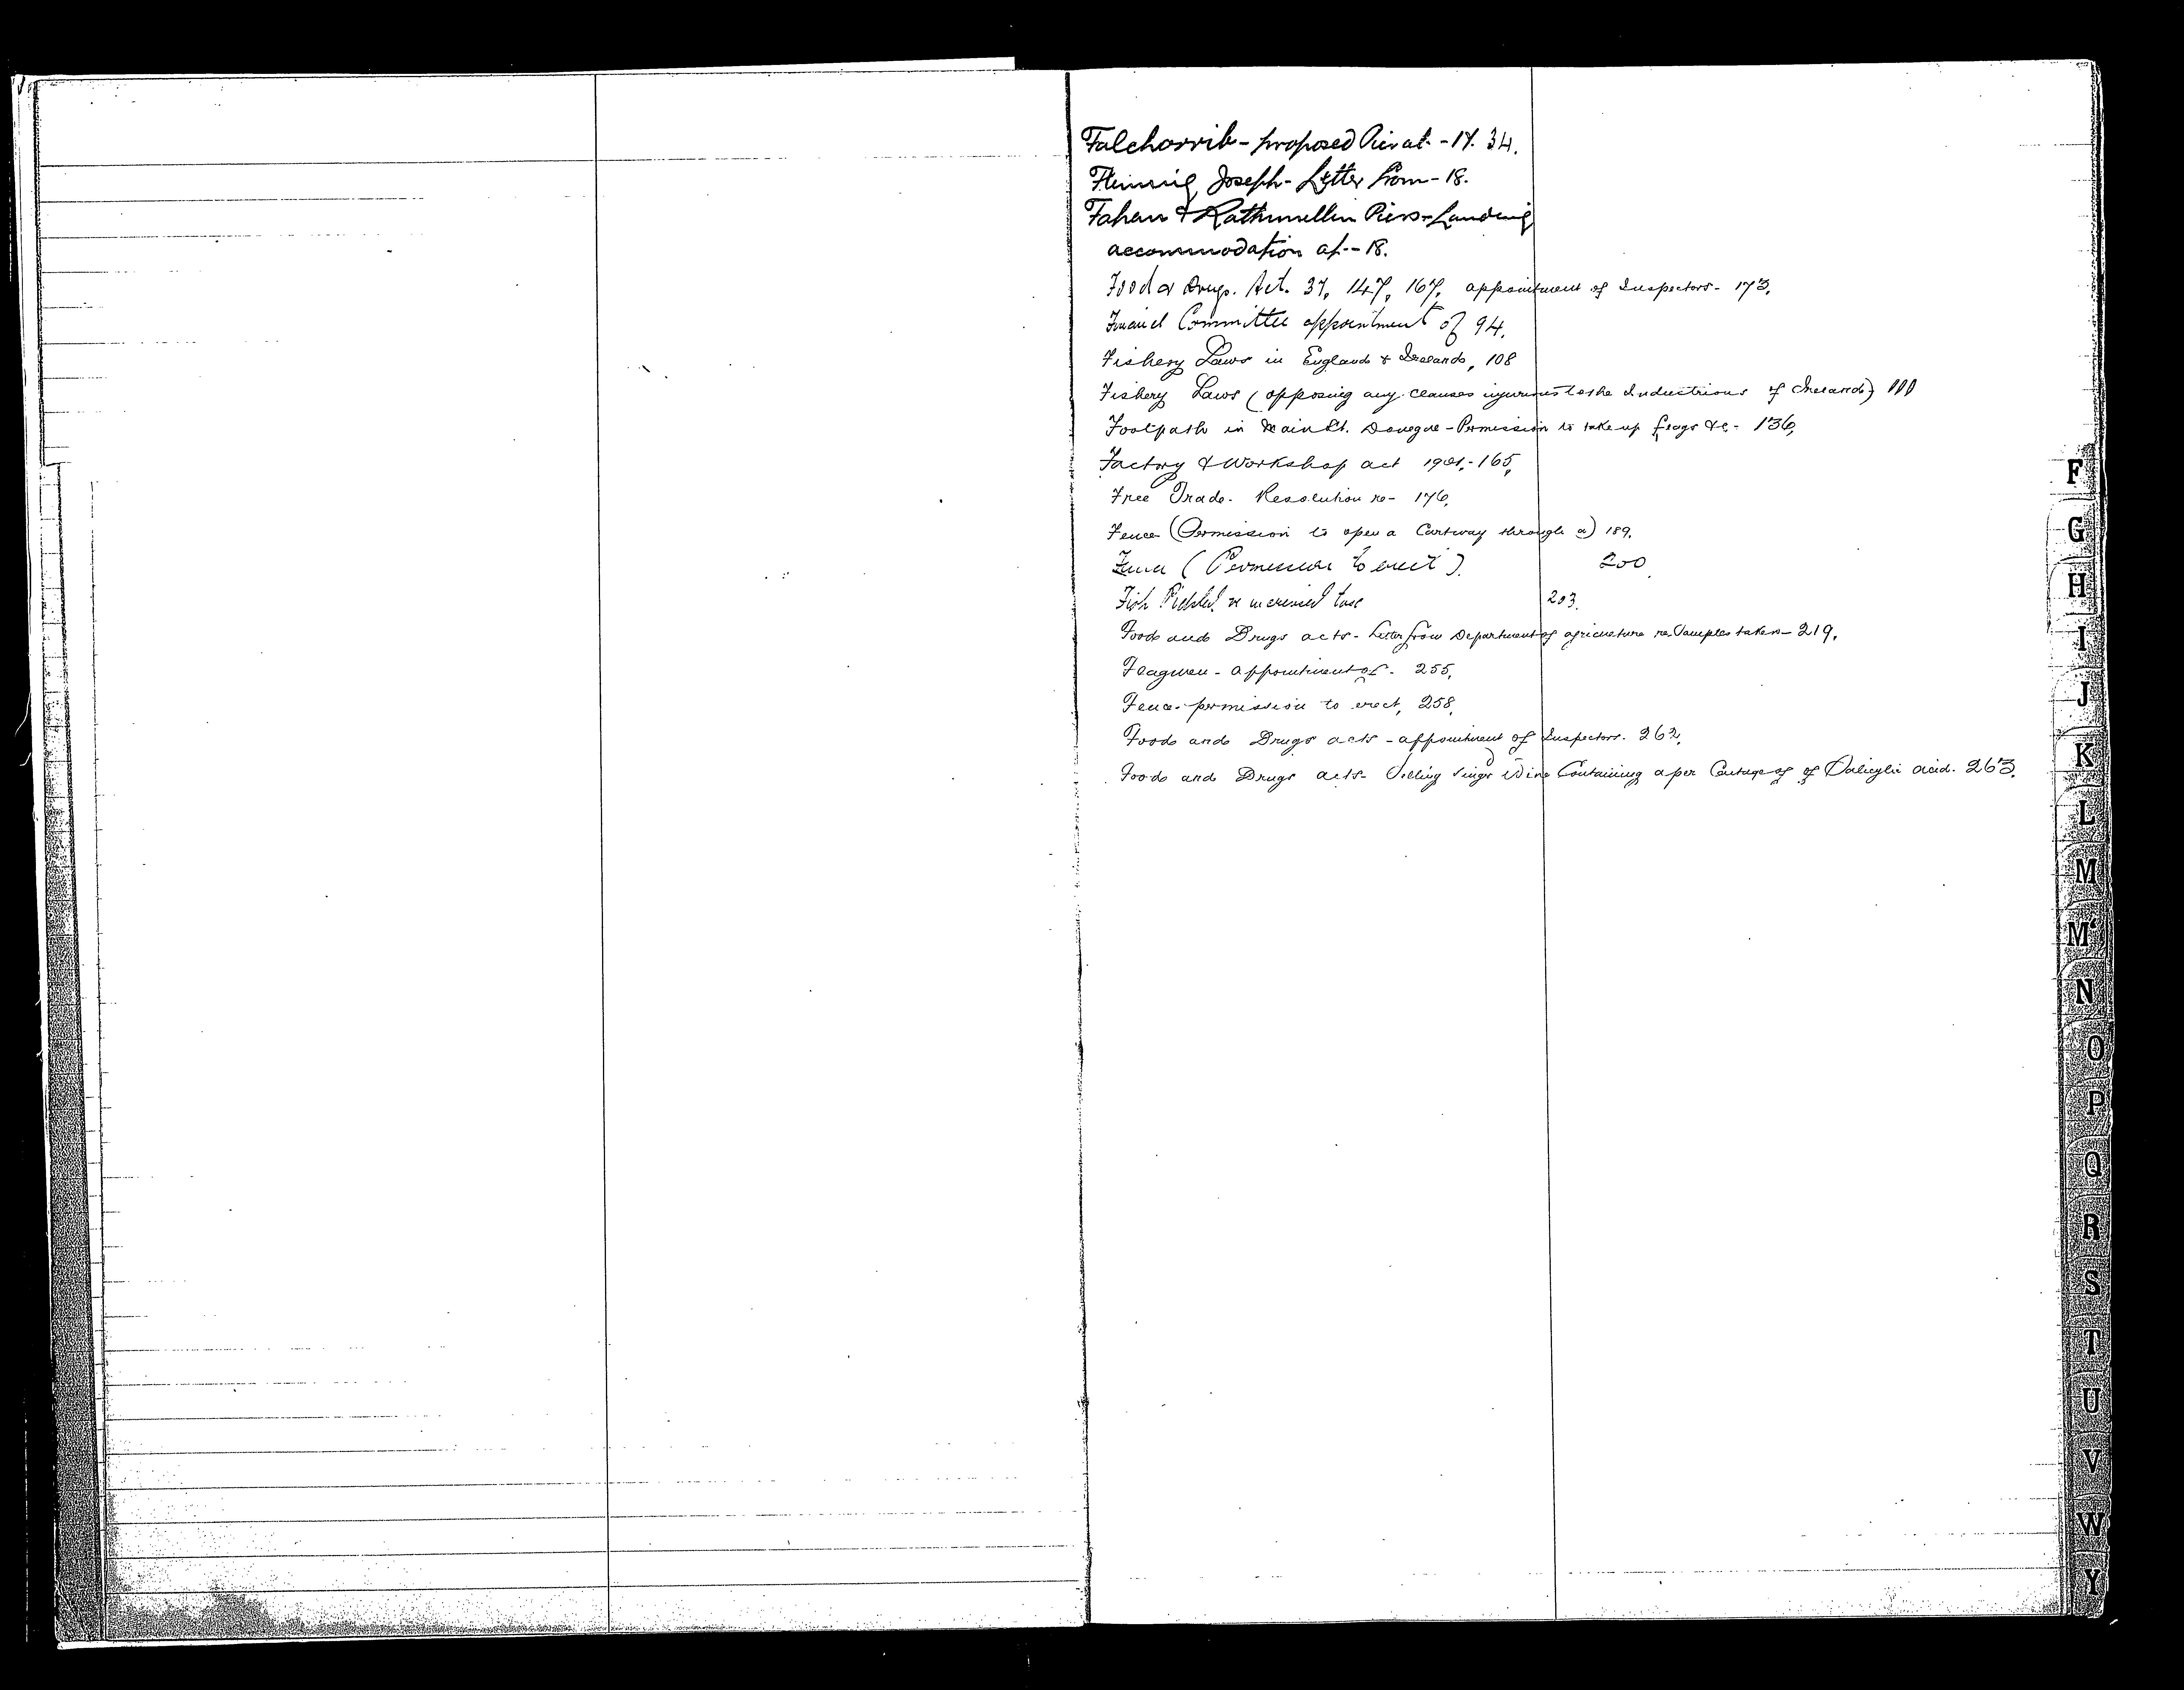 Falchorrib - proposed Pier at - 17. 34.
Fleming, Joseph - Letter from - 18.
Fahan & Rathmullen Piers - Landing
accommodation at - 18.
Food & Drugs. Act. 37, 147, 167, appointment of Inspectors - 173,
Financl Committee appointment of 94,
Fishery Laws in England & Ireland, 108
Fishery Laws (opposing any clauses injurious to the Industrious of Ireland) 111
Footpath in Main St. Donegal - Permission to take up flags &c - 136,
Factory & Workshop act 1901, - 165,
Free Trade - Resolution re - 176,
Fence (Permission to open a Cartway through a) 189,
Fence (Permission to erect). 200
Fish Pickled, re increased tax 203.
Food and Drugs acts - Letter from Department of agriculture re Samples taken - 219,
Flagmen - appointment of - 255,
Fence - permission to erect, 258,
Food and Drugs acts - appointment of Inspectors. 262,
Food and Drugs acts - Selling Ginger Wine Containing a per Centage of of Salicylic acid. 263,
F
G
H
I
J
K
L
M
M'
N
O
P
Q
R
S
T
U
V
W
Y